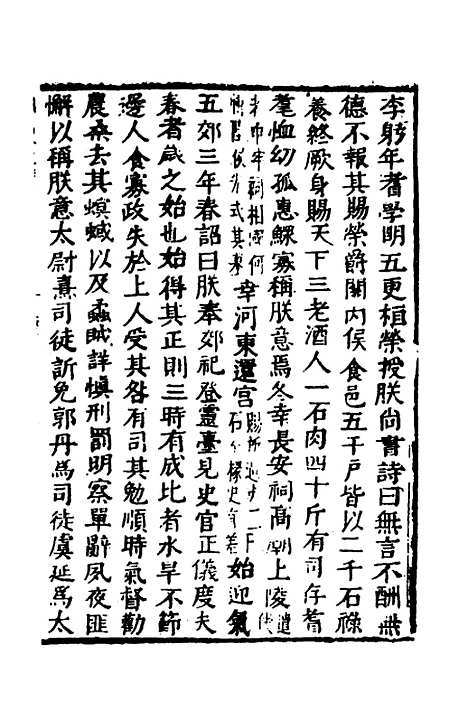 李躬年耆學明五更桓榮授朕尚書詩曰無言不酬無
德不報其賜榮爵關內侯食邑五千戶皆以二千石祿
養終厥身賜天下三老酒人一石肉四十斤有司存耆
耄恤幼孤惠鰥寡稱朕意焉冬幸長安祠高廟上陵遣
使中牢祠相國何幸河東還宮始迎氣
五郊三年春詔曰朕奉郊祀登靈臺見史官正儀度夫
春者歲之始也始得其正則三時有成比者水旱不節
邊人食寡政失於上人受其咎有司其勉順時氣督勸
農桑去其螟蜮以及蟊賊詳慎刑罰明察單辭夙夜匪
懈以稱朕意太尉憙司徒訢免郭丹為司徒虞延為太